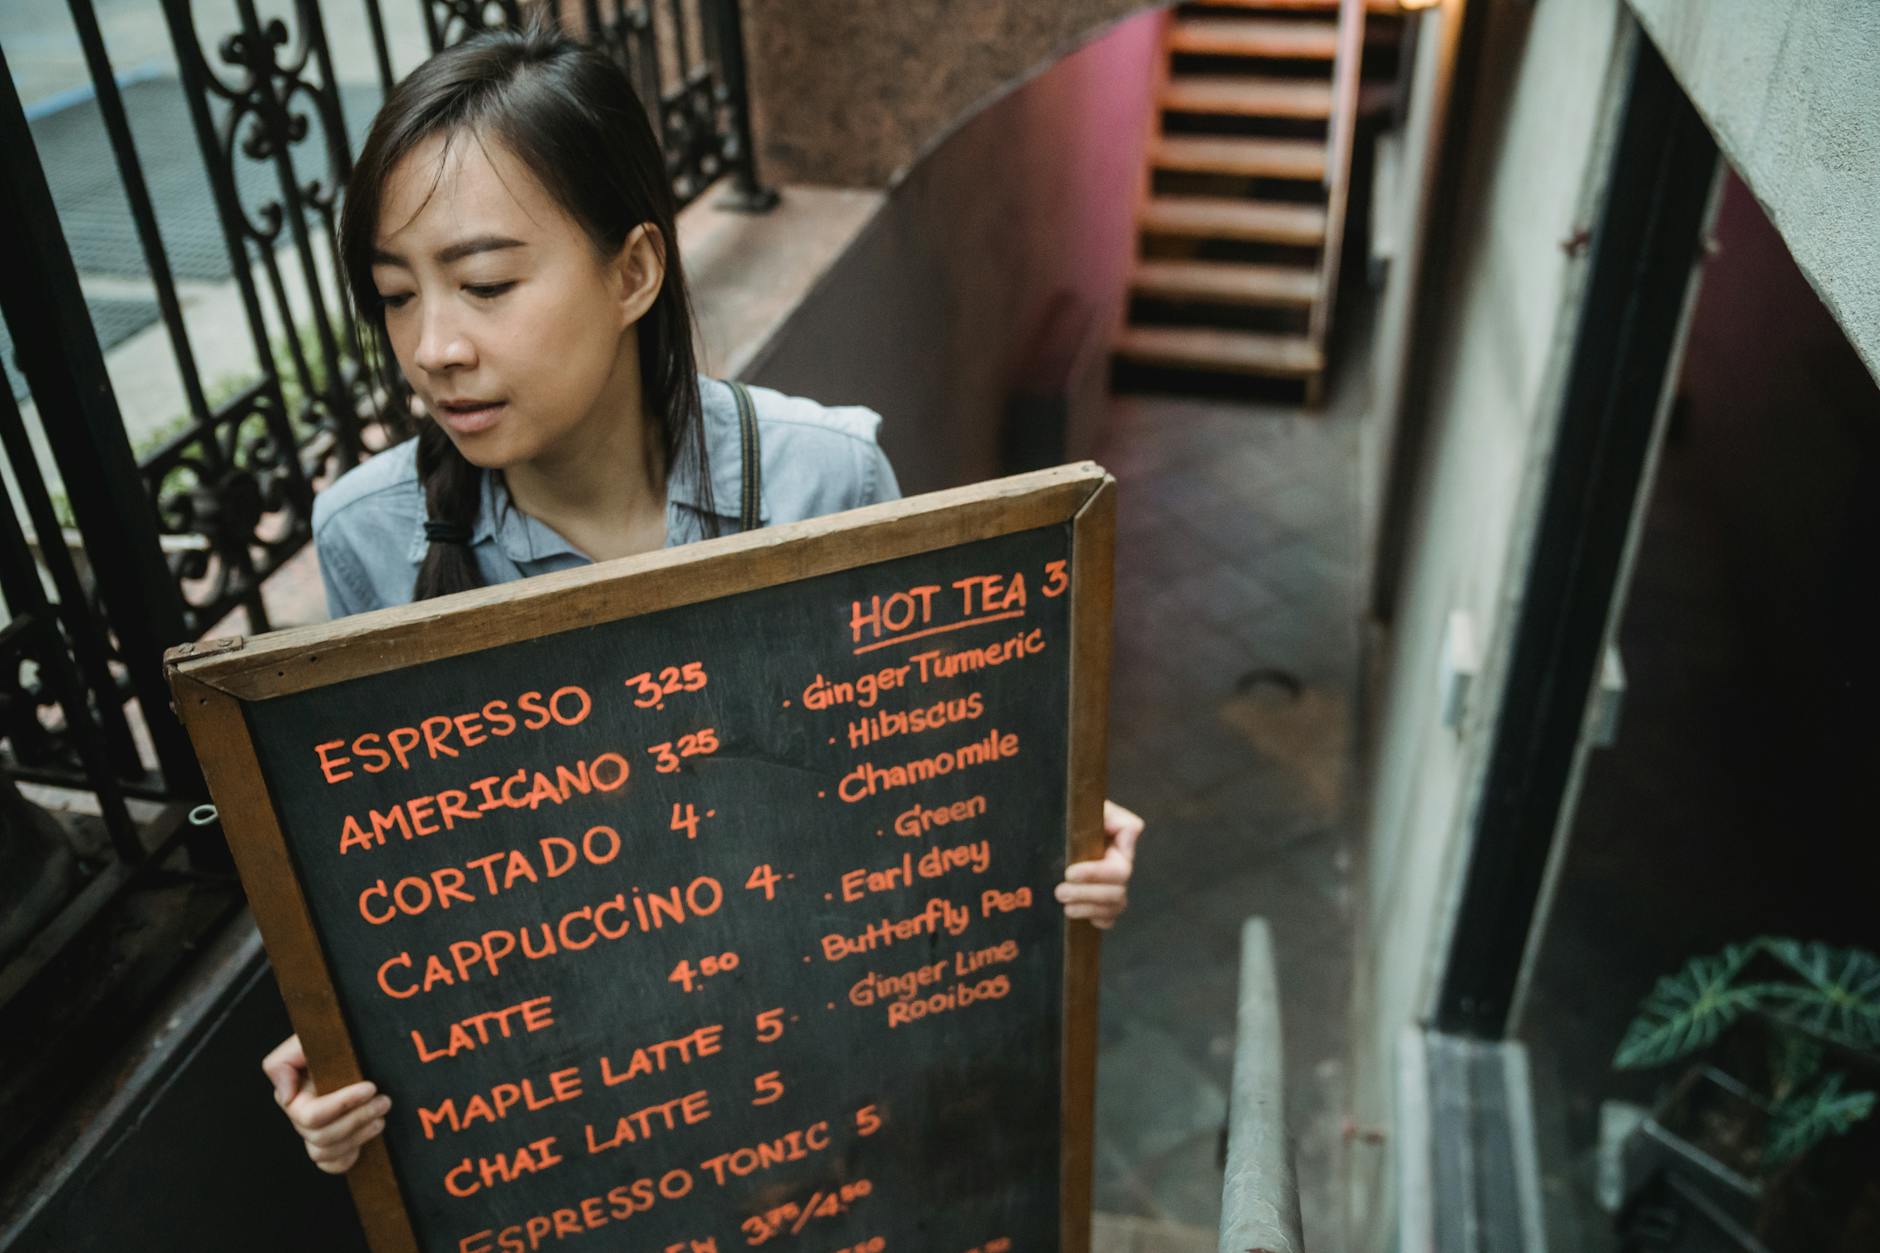 ESPRESSO 3.25
AMERICANO 3.25
CORTADO 4.
CAPPUCCINO 4.
LATTE 4.50
MAPLE LATTE 5.
CHAI LATTE 5
ESPRESSO TONIC 5
3.75/4.50
HOT TEA 3
· Ginger Turmeric
· Hibiscus
· Chamomile
· Green
· Earl Grey
· Butterfly Pea
· Ginger Lime
Rooibos